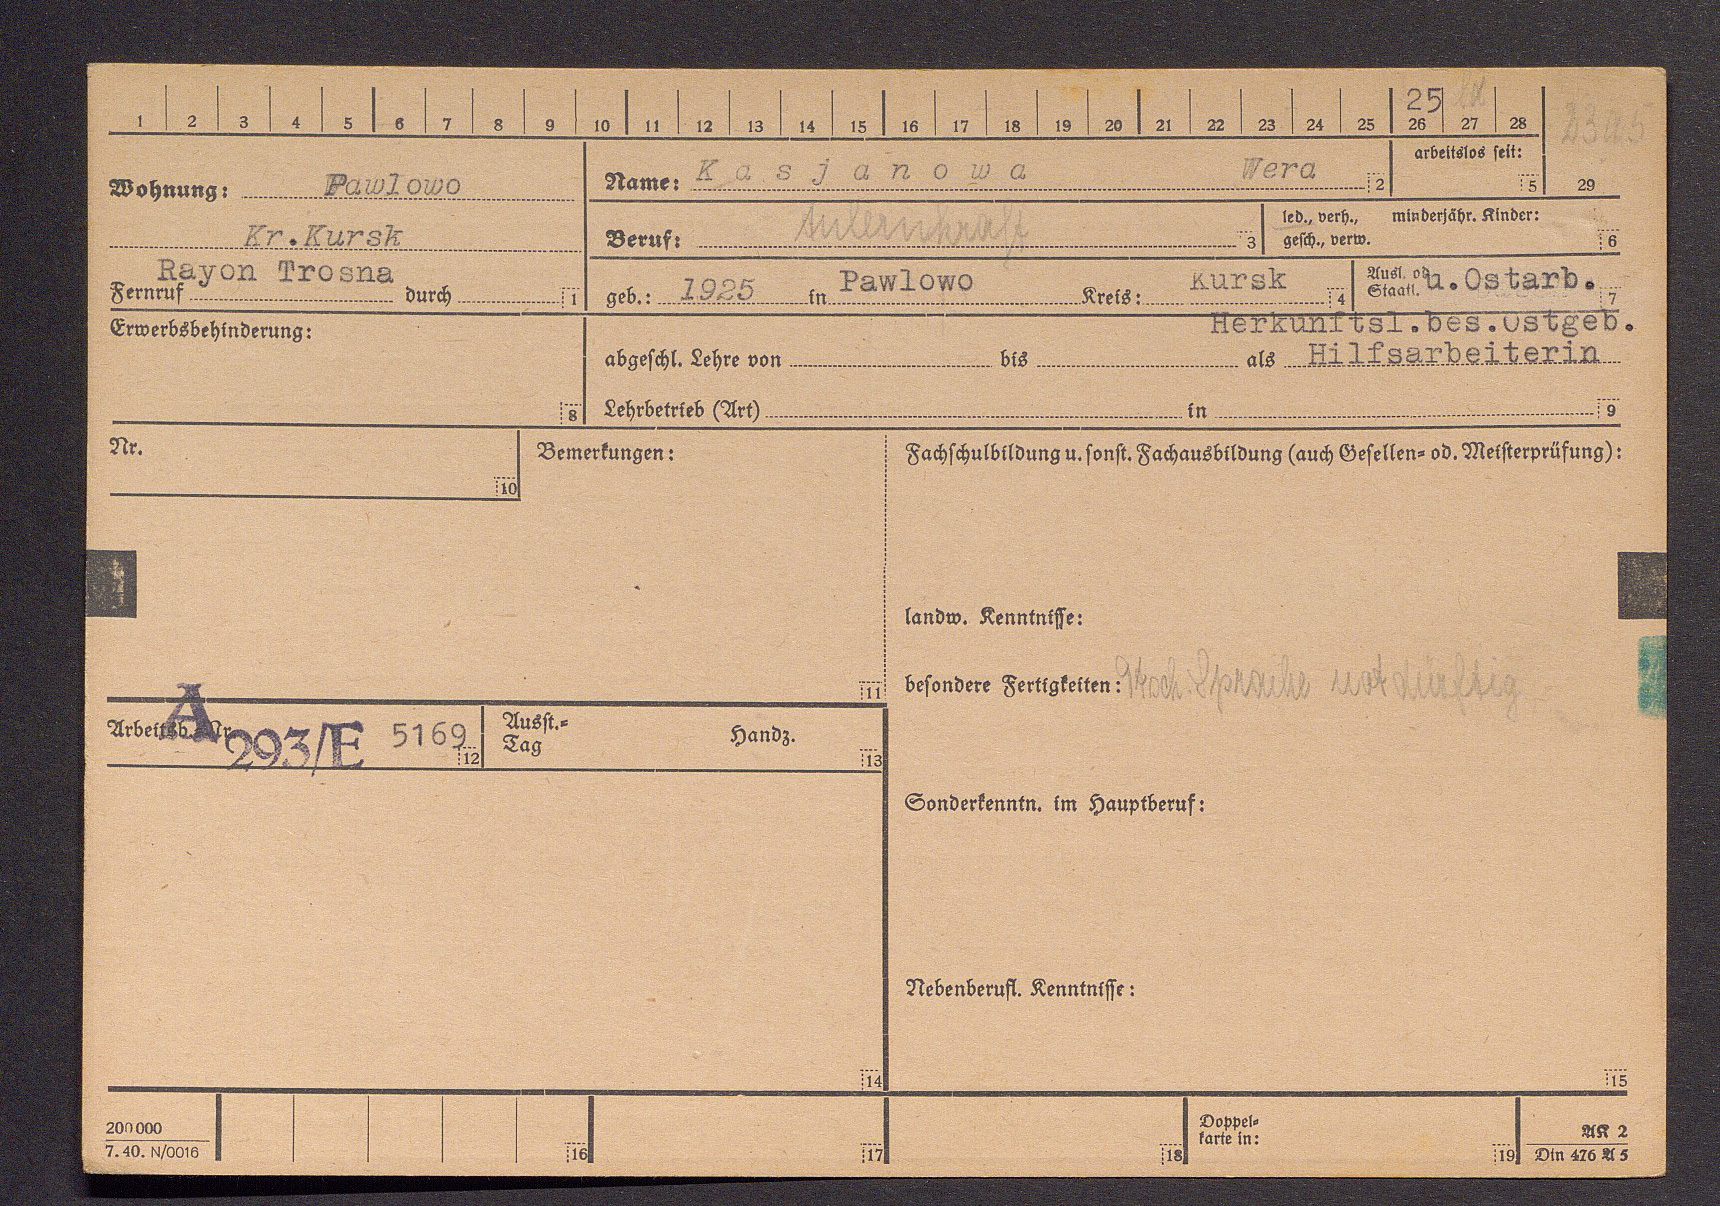 1 2 3 4 5 6 7 8 9 10 11 12 13 14 15 16 17 18 19 20 21 22 23 24 25 26 27 28
25
23a5
Wohnung: Pawlowo
Kr.Kursk
Rayon Trosna
Fernruf durch 1
Name: Kasjanowa Wera 2
arbeitslos seit:
5 29
Beruf: Anlernkraft 3
led., verh., minderjähr. Kinder:
gesch., verw. 6
geb.: 1925 in Pawlowo Kreis: Kursk 4
Ausl. od. u. Ostarb.
Staatl. 7
Herkunftsl.bes.Ostgeb.
Erwerbsbehinderung:
8
abgeschl. Lehre von bis als Hilfsarbeiterin
Lehrbetrieb (Art) in 9
Nr.
10
Bemerkungen:
11
Fachschulbildung u. sonst. Fachausbildung (auch Gesellen= od. Meisterprüfung):
landw. Kenntnisse:
besondere Fertigkeiten: Dtsch. Sprache notdürftig
Arbeitsb. Nr. A 293/E 5169 12
Ausst.=
Tag
Handz.
13
Sonderkenntn. im Hauptberuf:
Nebenberufl. Kenntnisse:
14
15
200000
7. 40. N/0016
16
17
18
Doppel=
karte in:
19
AK 2
Din 476 A 5